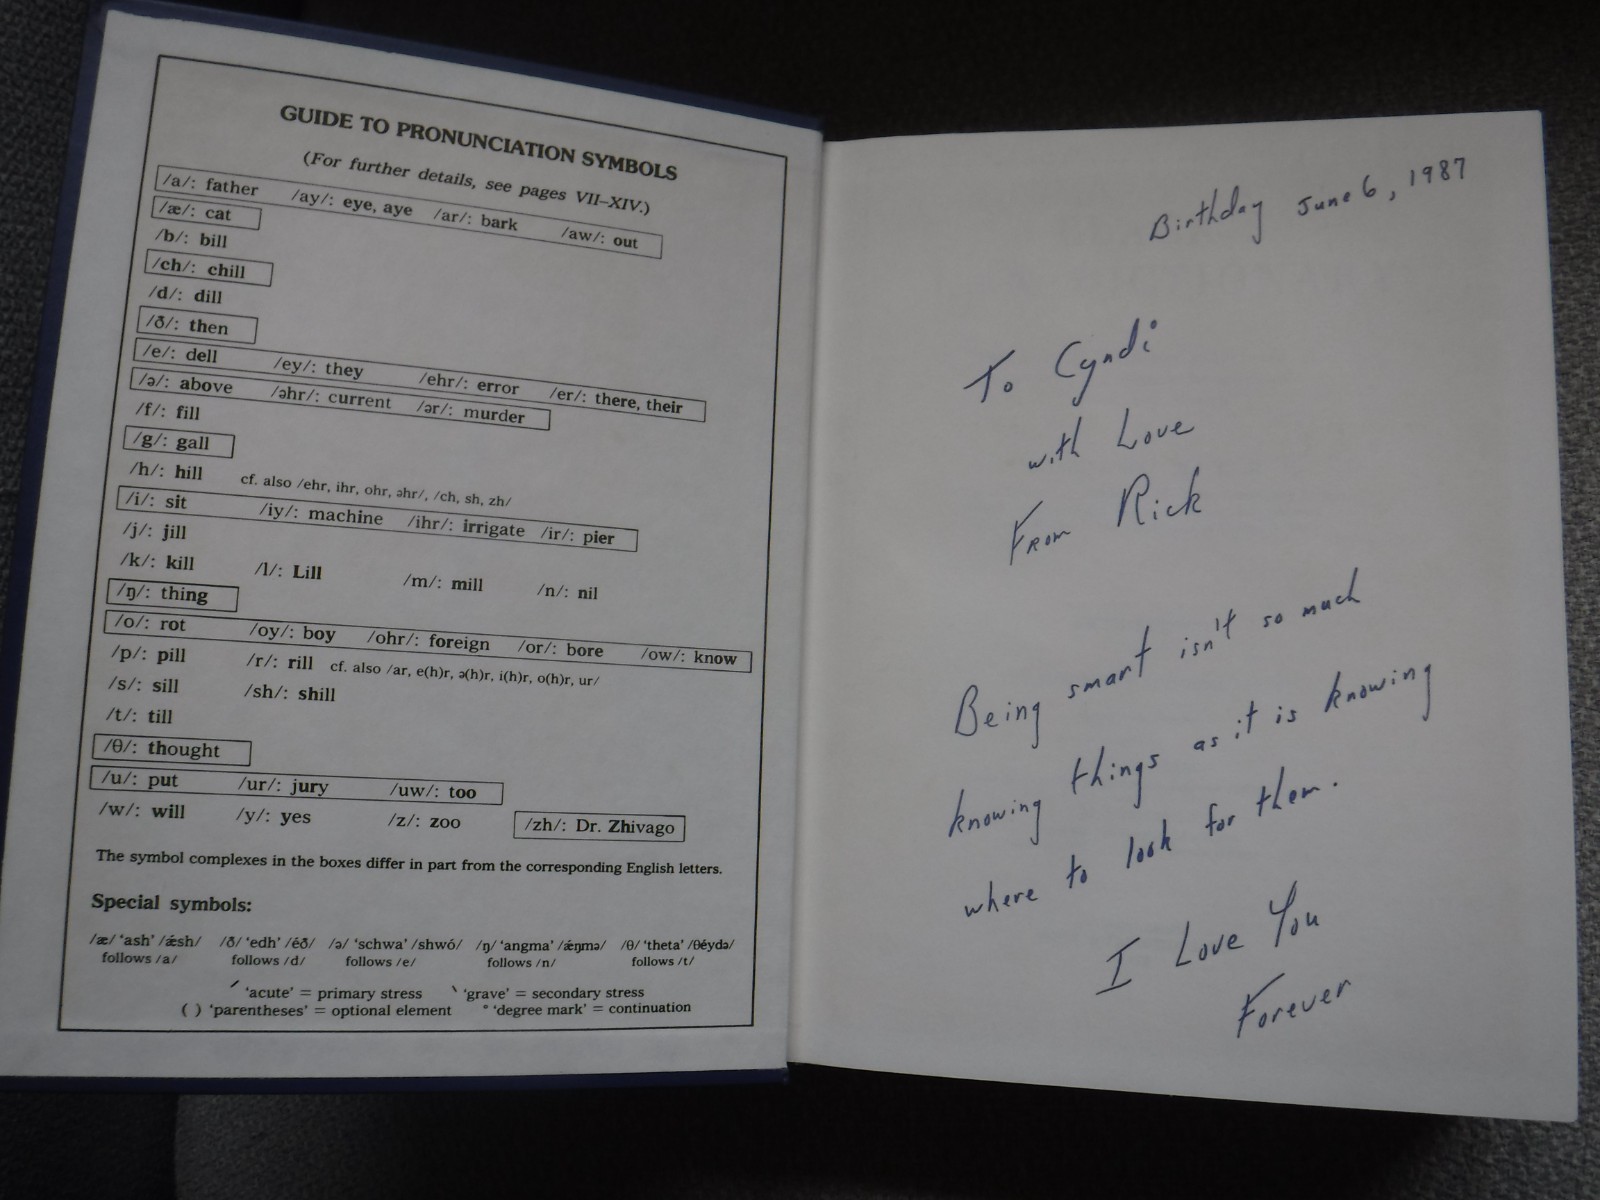 GUIDE TO PRONUNCIATION SYMBOLS
(For further details, see pages VII–XIV.)
/a/: father /ay/: eye, aye /ar/: bark /aw/: out
/æ/: cat
/b/: bill
/ch/: chill
/d/: dill
/ð/: then
/e/: dell /ey/: they /ehr/: error /er/: there, their
/ə/: above /əhr/: current /ər/: murder
/f/: fill
/g/: gall
/h/: hill cf. also /ehr, ihr, ohr, əhr/, /ch, sh, zh/
/i/: sit /iy/: machine /ihr/: irrigate /ir/: pier
/j/: jill
/k/: kill /l/: Lill /m/: mill /n/: nil
/ŋ/: thing
/o/: rot /oy/: boy /ohr/: foreign /or/: bore /ow/: know
/p/: pill /r/: rill cf. also /ar, e(h)r, ə(h)r, i(h)r, o(h)r, ur/
/s/: sill /sh/: shill
/t/: till
/θ/: thought
/u/: put /ur/: jury /uw/: too
/w/: will /y/: yes /z/: zoo /zh/: Dr. Zhivago
The symbol complexes in the boxes differ in part from the corresponding English letters.
Special symbols:
/æ/ 'ash' /ǽsh/ /ð/ 'edh' /éð/ /ə/ 'schwa' /shwó/ /ŋ/ 'angma' /ǽŋmə/ /θ/ 'theta' /θéydə/
follows /a/ follows /d/ follows /e/ follows /n/ follows /t/
ˊ 'acute' = primary stress ˋ 'grave' = secondary stress
( ) 'parentheses' = optional element ° 'degree mark' = continuation
Birthday June 6, 1987
To Cyndi
with Love
From Rick
Being smart isn't so much
knowing things as it is knowing
where to look for them.
I Love You
Forever